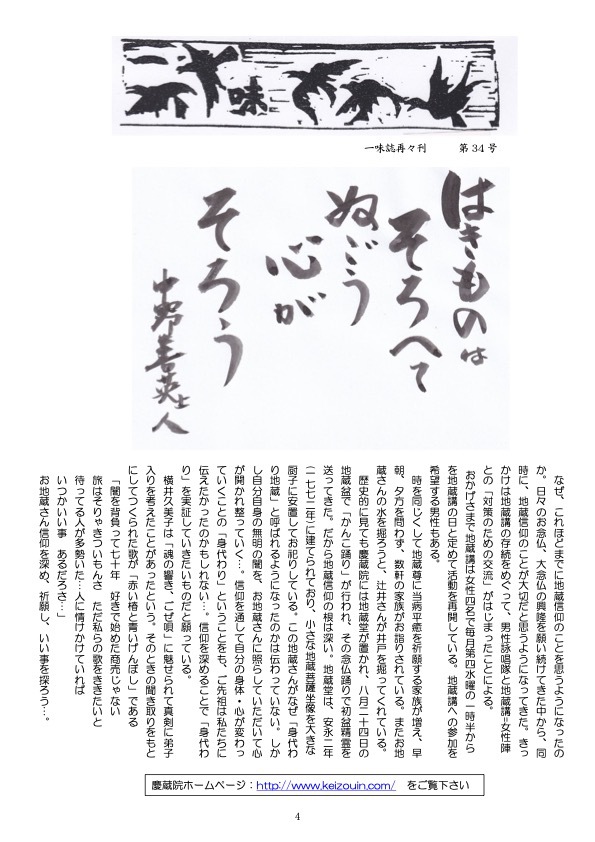 一味
一味誌再々刊　第34号
はきものは
そろへて
ぬごう
心が
そろう
中野善英上人
なぜ、これほどまでに地蔵信仰のことを思うようになったの
か。日々のお念仏、大念仏の興隆を願い続けてきた中から、同
時に、地蔵信仰のことが大切だと思うようになってきた。きっ
かけは地蔵講の存続をめぐって、男性詠唱隊と地蔵講=女性陣
との「対策のための交流」がはじまったことによる。
おかげさまで地蔵講は女性四名で毎月第四水曜の一時半から
を地蔵講の日と定めて活動を再開している。地蔵講への参加を
希望する男性もある。
時を同じくして地蔵尊に当病平癒を祈願する家族が増え、早
朝、夕方を問わず、数軒の家族がお詣りされている。またお地
蔵さんの水を掘ろうと、辻井さんが井戸を掘ってくれている。
歴史的に見ても慶蔵院には地蔵堂が置かれ、八月二十四日の
地蔵盆で「かんこ踊り」が行われ、その念仏踊りで初盆精霊を
送ってきた。だから地蔵信仰の根は深い。地蔵堂は、安永二年
(一七七二年)に建てられており、小さな地蔵菩薩坐像を大きな
厨子に安置してお祀りしている。この地蔵さんがなぜ「身代わ
り地蔵」と呼ばれるようになったのかは伝わっていない。しか
し自分自身の無明の闇を、お地蔵さんに照らしていただいて心
が開かれ整っていく…。信仰を通して自分の身体・心が変わっ
ていくことの「身代わり」ということをも、ご先祖は私たちに
伝えたかったのかもしれない…。信仰を深めることで「身代わ
り」を実証していきたいものだと願っている。
横井久美子は「魂の響き、ごぜ唄」に魅せられて真剣に弟子
入りを考えたことがあったという。そのときの聞き取りをもと
にしてつくられた歌が「赤い椿と青いげんぼし」である
「闇を背負って七十年　好きで始めた商売じゃない
旅はそりゃきついもんさ　ただ私らの歌をききたいと
待ってる人が多勢いた…人に情けかけていれば
いつかいい事　あるだろさ…」
お地蔵さん信仰を深め、祈願し、いい事を探ろう…。
慶蔵院ホームページ：http://www.keizouin.com/　をご覧下さい
4